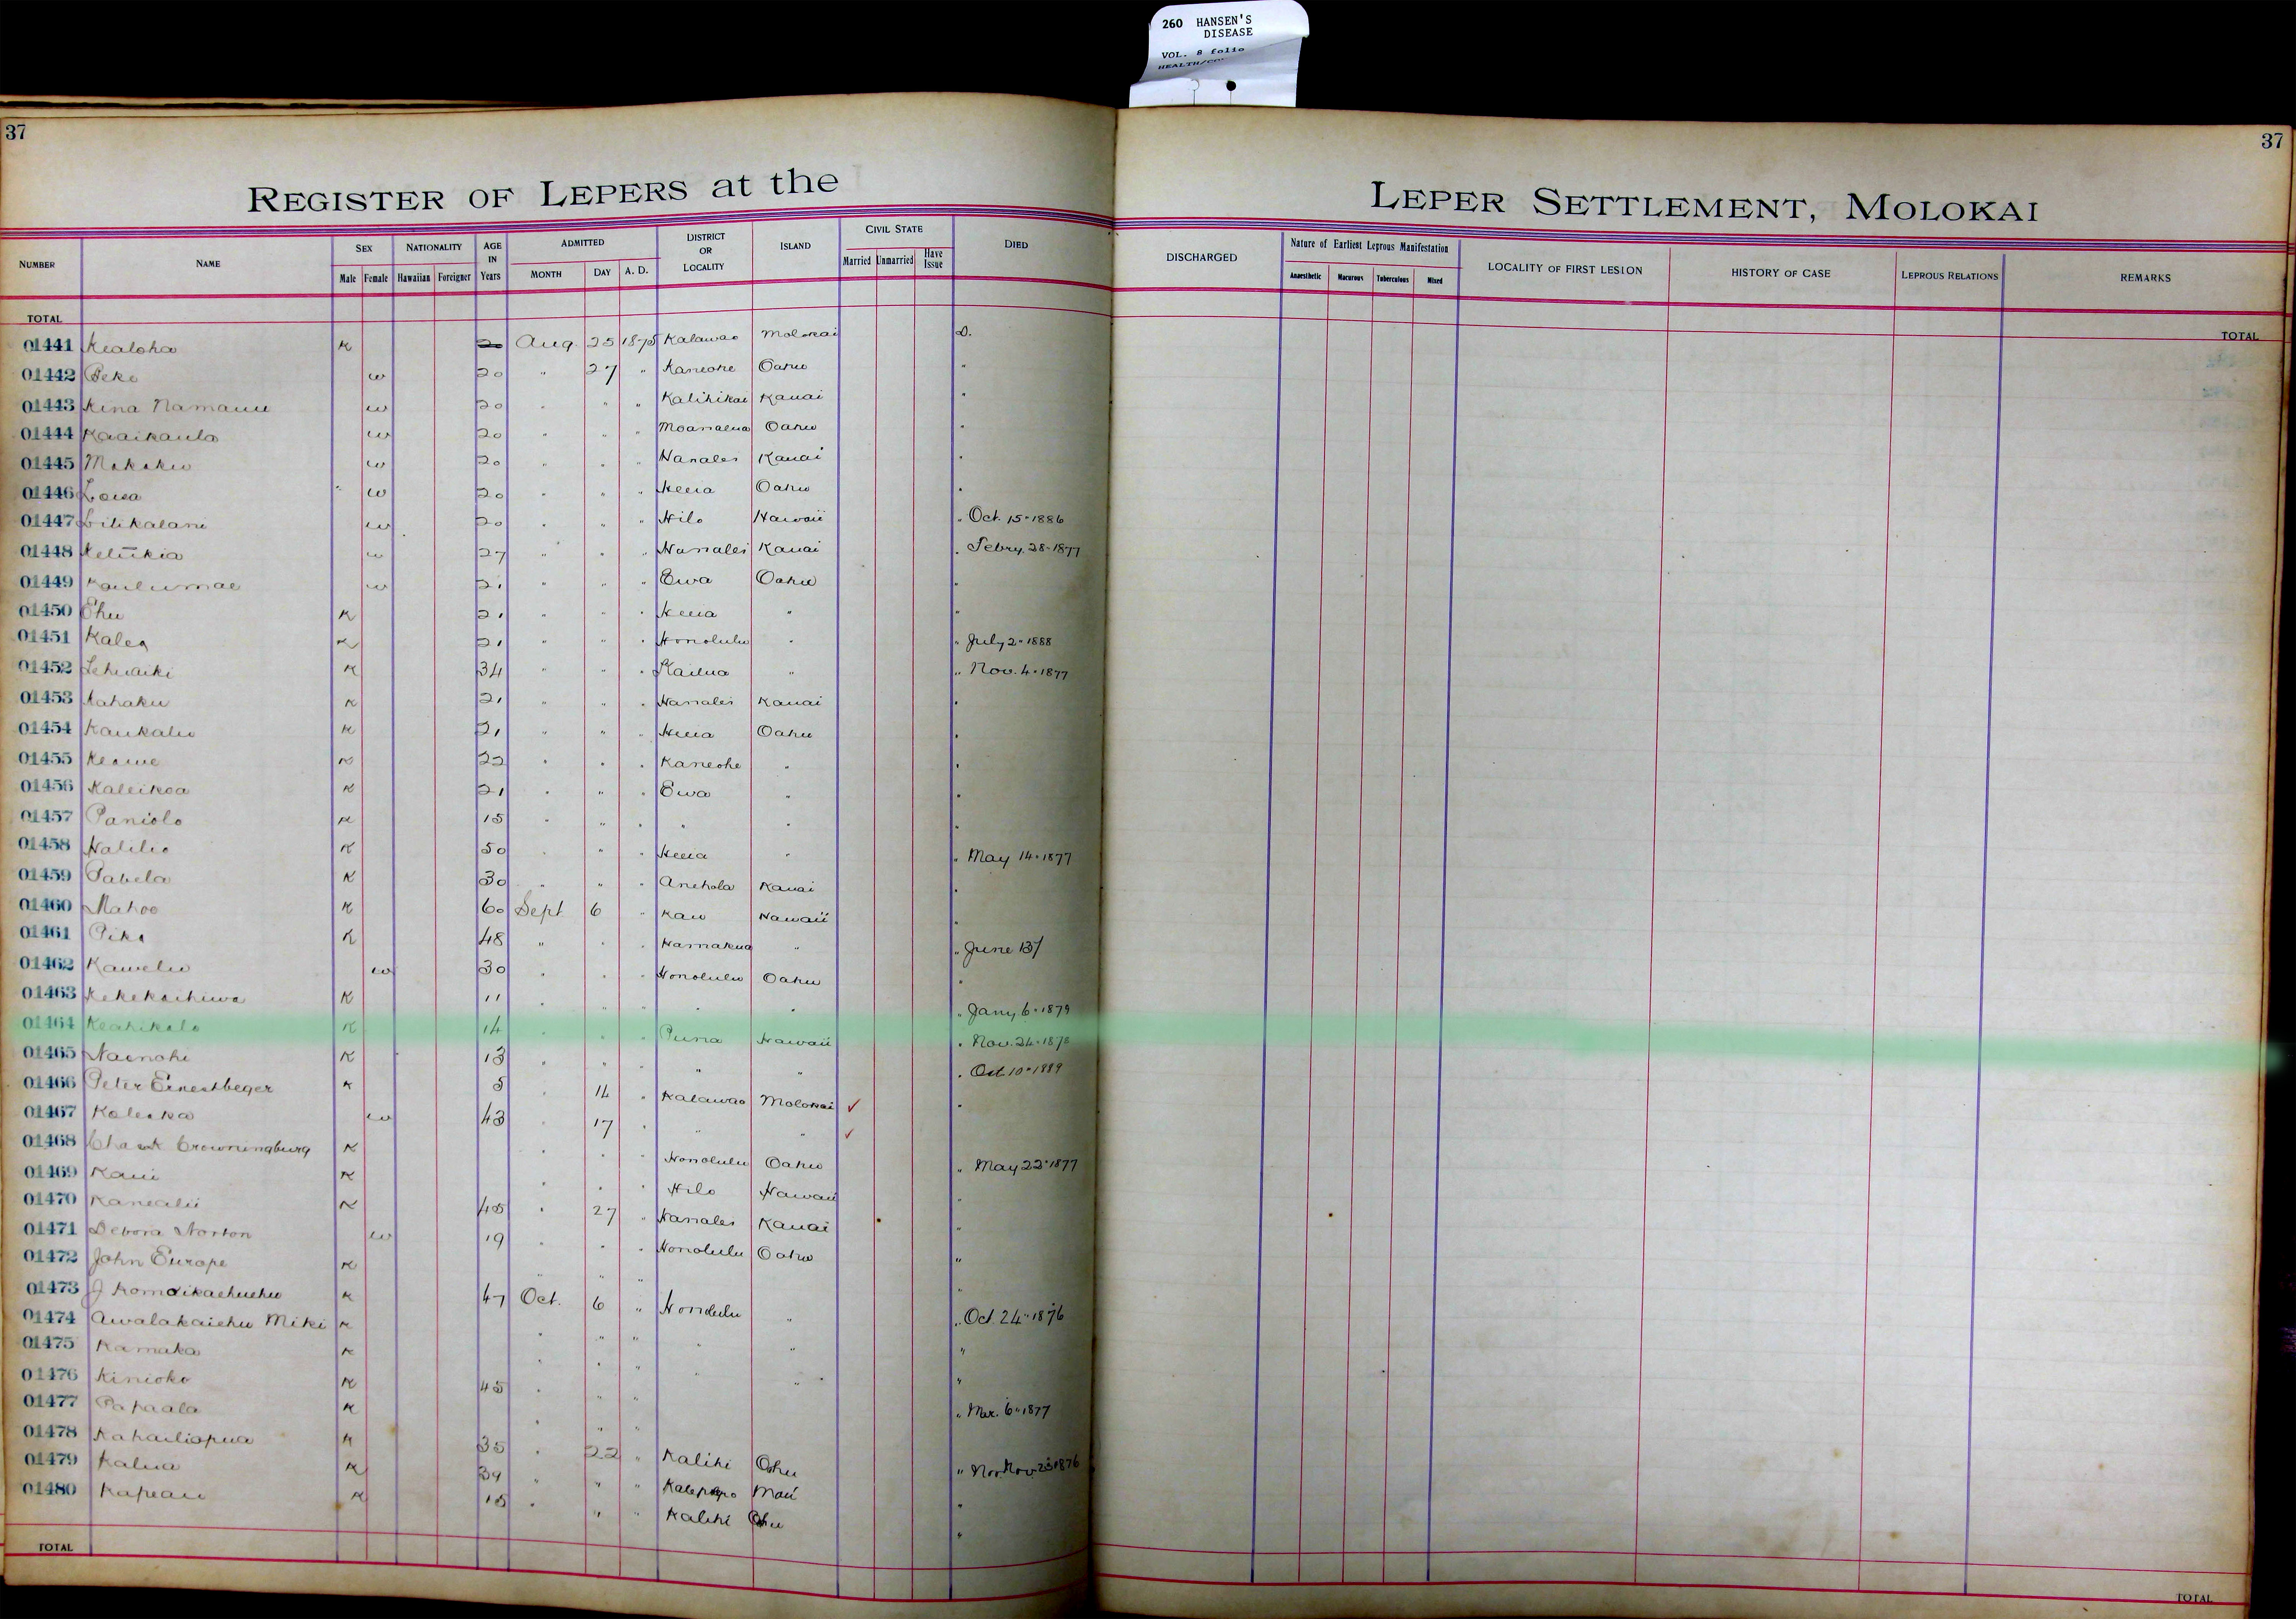 260 HANSEN'S
DISEASE
VOL. 8 folio
37
37
REGISTER OF LEPERS at the LEPER SETTLEMENT, MOLOKAI
NUMBER NAME SEX NATIONALITY AGE IN Years ADMITTED DISTRICT OR LOCALITY ISLAND CIVIL STATE DIED DISCHARGED Nature of Earliest Leprous Manifestation LOCALITY OF FIRST LESION HISTORY OF CASE LEPROUS RELATIONS REMARKS
Male Female Hawaiian Foreigner MONTH DAY A. D. Married Unmarried Have Issue Anaesthetic Macurous Tuberculous Mixed
TOTAL TOTAL
01441 Kealoha K 20 Aug. 25 1875 Kalawao Molokai D.
01442 Peke w 20 " 27 " Kaneohe Oahu "
01443 Kina Namauu w 20 " " " Kalihikai Kauai "
01444 Kaaikaula w 20 " " " Moanalua Oahu "
01445 Mokoku w 20 " " " Hanalei Kauai "
01446 Loisa w 20 " " " Heeia Oahu "
01447 Lilikalani w 20 " " " Hilo Hawaii " Oct. 15 - 1886
01448 Keliikia w 27 " " " Hanalei Kauai " Febry. 28 - 1877
01449 Kaulumae w 21 " " " Ewa Oahu "
01450 Ehu K 21 " " " Heeia " "
01451 Kalea K 21 " " " Honolulu " " July 2 - 1888
01452 Lehuaiki K 34 " " " Kailua " " Nov. 4 - 1877
01453 Kahaku K 21 " " " Hanalei Kauai "
01454 Kaukaliu K 21 " " " Heeia Oahu "
01455 Keawe K 22 " " " Kaneohe " "
01456 Kaleikoa K 21 " " " Ewa " "
01457 Paniolo K 15 " " " " " "
01458 Halilio K 50 " " " Heeia " " May 14 - 1877
01459 Pabela K 30 " " " Anehola Kauai "
01460 Mahoe K 60 Sept 6 " Kau Hawaii "
01461 Piko K 48 " " " Hamakua " " June 13/
01462 Kawelu w 30 " " " Honolulu Oahu "
01463 Kekekachiwa K 11 " " " " " " Jany 6 - 1879
01464 Keahikalo K 14 " " " Puna Hawaii " Nov. 24 - 1878
01465 Nainohi K 13 " " " " " " Oct 10 - 1889
01466 Peter Ernestbeger K 5 " 14 " Kalawao Molokai ✓ "
01467 Kaleika w 43 " 17 " " " ✓
01468 Crowningburg K " " " Honolulu Oahu " May 22 - 1877
01469 Kaui K " " " Hilo Hawaii "
01470 Kanealii K 45 " 27 " Hanalei Kauai "
01471 Debora Norton w 19 " " " Honolulu Oahu "
01472 John Europe K " " " "
01473 J Komoikaehuehu K 47 Oct. 6 " Honolulu " " Oct. 24 - 1876
01474 Awalakaiehu Miki K " " " " " "
01475 Kamaka K " " " " " "
01476 Kinioko K 45 " " " " Mar. 6 - 1877
01477 Papaala K " " "
01478 Kahailiopua K 35 " 22 " Kalihi Oahu " Nov. 23 1876
01479 Kalua K 39 " " " Kalepolepo Maui "
01480 Kapeau K 15 " " " Kalihi Oahu "
TOTAL TOTAL